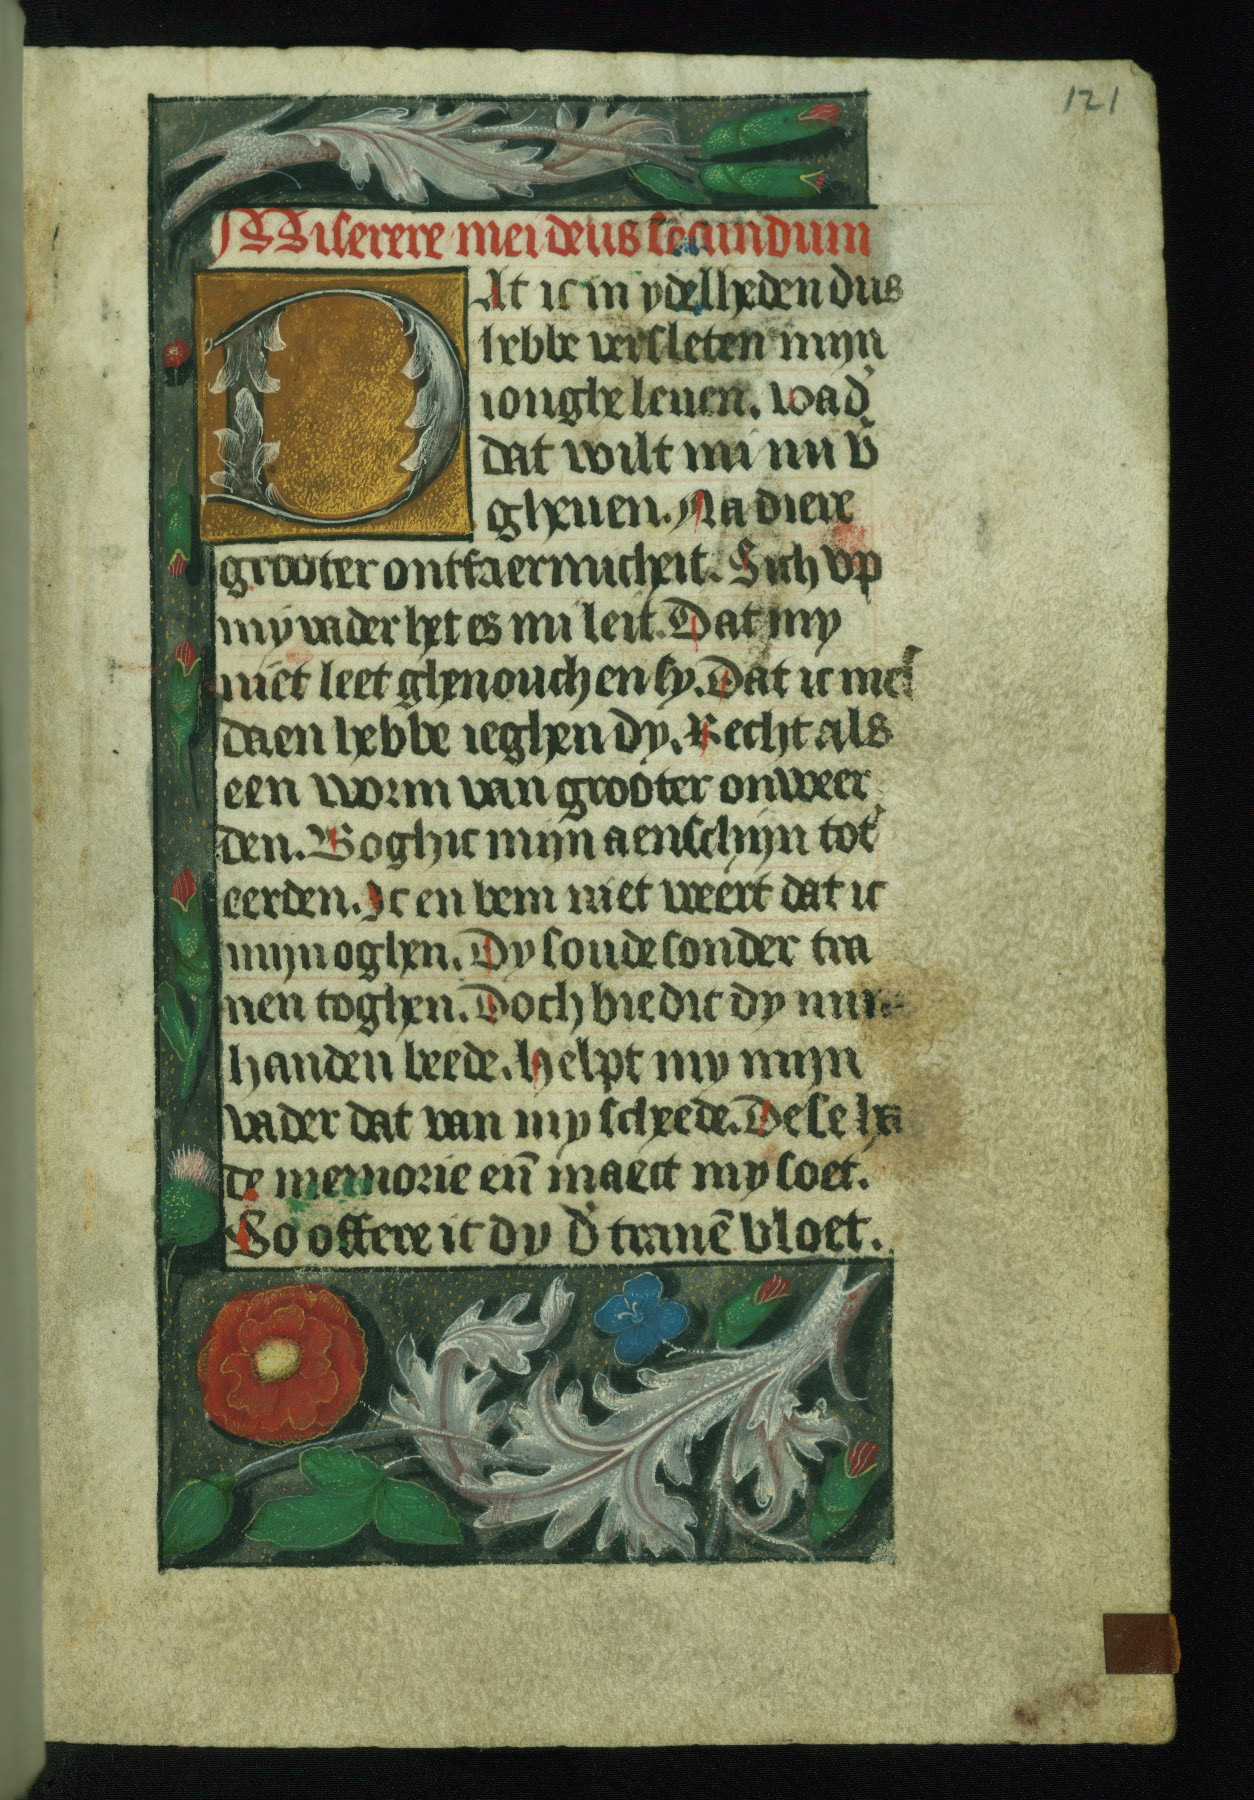 121
Miserere mei deus secundum
DAt ic in ydelheden dus
hebbe versleten mijn
ionghe leuen. vad'
dat wilt mi nu v'
gheuen. Na diere
grooter ontfaermicheit. Sich vp
my vader het es mi leit. Dat my
niet leet ghenouch en sy. Dat ic mes
daen hebbe ieghen dy. Recht als
een worm van grooter onweer
den. Boghic mijn aenschijn tot
eerden. Ic en bem niet weert dat ic
mijn oghen. Dy soude sonder tra
nen toghen. Doch biedic dy mijn
handen beede. helpt my mijn
vader dat van my scheede. Dese qua
de memorie en̄ maect my soet.
So offere ic dy d' tranē vloet.